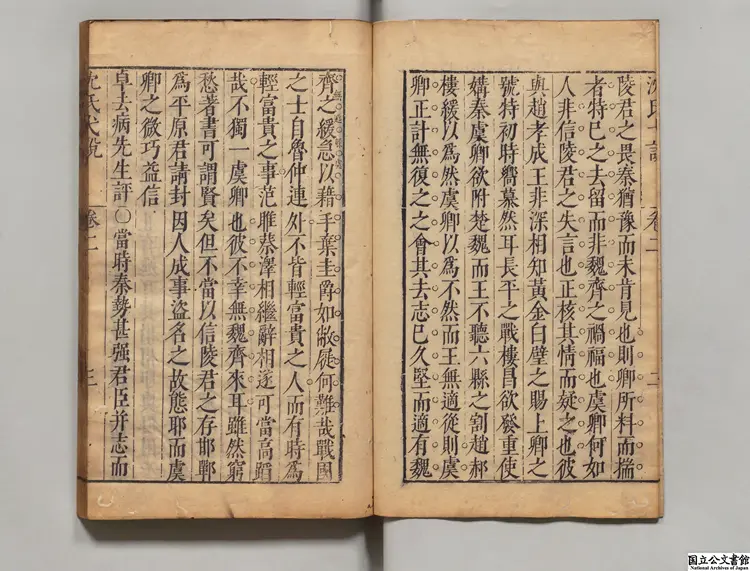 卷二
陵君之畏秦猶豫而未肯見也則卿所料而揣
者特已之去留而非魏齊之禍福也虞卿何如
人非信陵君之失言也正核其情而疑之也彼
與趙孝成王非深相知黃金白璧之賜上卿之
號特初時嚮慕然耳長平之戰樓昌欲發重使
媾秦虞卿欲附楚魏而王不聽六縣之割趙郝
樓緩以為然虞卿以為不然而王無適從則虞
卿正計無復之之會其去志已久堅而適有魏
齊之緩急以藉手棄圭爵如敝屣何難哉戰國
之士自魯仲連外不皆輕富貴之人而有時爲
輕富貴之事范雎蔡澤相繼辭相遂可當高蹈
哉不獨一虞卿也彼不幸無魏齊來耳雖然窮
愁著書可謂賢矣但不當以信陵君之存邯鄲
爲平原君請封因人成事盜名之故態耶而虞
卿之微巧益信
卓去病先生評〇當時秦勢甚强君臣并志而
沈氏弋說 卷二
国立公文書館
National Archives of Japan